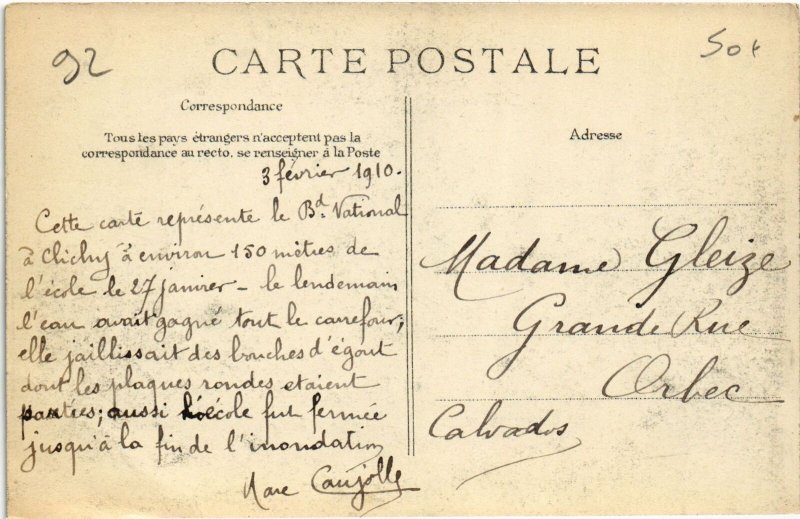 92
50f
CARTE POSTALE
Correspondance
Tous les pays étrangers n'acceptent pas la
correspondance au recto, se renseigner à la Poste
3 février 1910.
Cette carte représente le Bd. National
à Clichy à environ 150 mètres de
l'école le 27 janvier - le lendemain
l'eau avait gagné tout le carrefour;
elle jaillissait des bouches d'égout
dont les plaques rondes étaient
aussi l'école fut fermée
jusqu'à la fin de l'inondation
Marc Caujolle
Adresse
Madame Gleize
Grande Rue
Orbec
Calvados